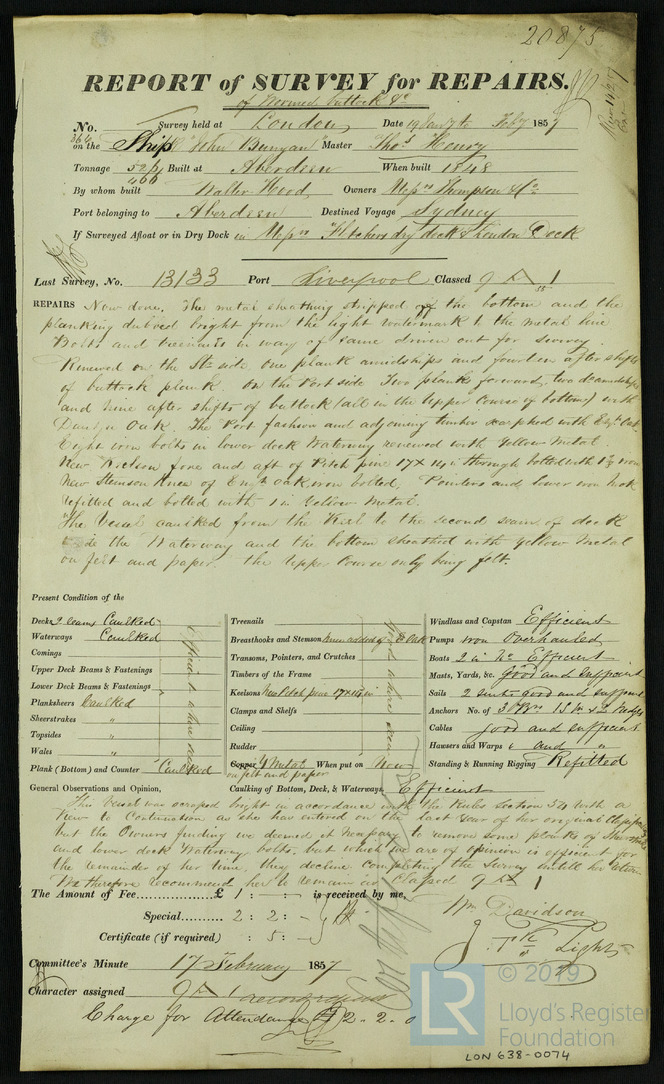 20875
REPORT of SURVEY for REPAIRS.
of Wormed buttock &c
No. 364 Survey held at London Date 19 Jany to Feby 1857
on the Ship "John Bunyan" Master Thos. Henry
Tonnage 524 / 466 Built at Aberdeen When built 1848
By whom built Walter Hood Owners Messrs Thompson & Co
Port belonging to Aberdeen Destined Voyage Sydney
If Surveyed Afloat or in Dry Dock in Messrs Fletchers dry dock & London Dock
Last Survey, No. 13133 Port Liverpool Classed A 1
55
REPAIRS Now done. The metal sheathing stripped off the bottom and the
planking dubbed bright from the light watermark to the metal line
Bolts and treenails in way of same driven out for survey
Renewed on the St. side one plank amidships and fourteen after shifts
of buttock plank. On the Port side Two planks forward, two do amidships
and nine after shifts of buttock (all in the upper course of bottom) with
Dantzic Oak. The Port fashion and adjoining timber scarphed with Engh Oak
Eight iron bolts in lower deck Waterway renewed with Yellow Metal.
New Keelson fore and aft of Pitch pine 17 x 14 in through bolted with 1⅛ iron
New Stemson Knee of Engh oak iron bolted. Pointers and lower iron hook
refitted and bolted with 1 in Yellow Metal.
The Vessel caulked from the Keel to the second seam of deck
inside the Waterway and the bottom sheathed with Yellow Metal
on felt and paper. the Upper Course only being felt.
Present Condition of the
Decks 2 seams Caulked
Waterways Caulked
Comings
Upper Deck Beams & Fastenings
Lower Deck Beams & Fastenings
Planksheers Caulked
Sheerstrakes "
Topsides "
Wales "
Plank (Bottom) and Counter Caulked
Efficient where seen
Treenails
Breasthooks and Stemson Knee added of E Oak
Transoms, Pointers, and Crutches
Timbers of the Frame
Keelsons New Pitch pine 17 x 14 in
Clamps and Shelfs
Ceiling
Rudder
Copper Y Metal When put on Now
on felt and paper
Caulking of Bottom, Deck, & Waterways Efficient
Good where seen
Windlass and Capstan Efficient
Pumps iron Overhauled
Boats 2 in No Efficient
Masts, Yards, &c. Good and sufficient
Sails 2 suits good and sufficient
Anchors No. of 3 Brs 1 St & 2 Kedges
Cables good and sufficient
Hawsers and Warps " and "
Standing & Running Rigging Refitted
General Observations and Opinion,
This Vessel was scraped bright in accordance with the Rules Section 34 with a
view to Continuation as she has entered on the last year of her original Class
but the Owners finding we deemed it necessary to remove some planks of
and lower deck Waterway bolts, but which we are of opinion is efficient for
the remainder of her time, they decline completing the Survey untill her return
We therefore recommend her to remain as Classed A 1
The Amount of Fee £ 1 : - : - is received by me,
Special 2 : 2 : -
Certificate (if required) : 5 : -
Wm. Davidson
J. Light
Committee's Minute 17 February 1857
Character assigned A 1
Charge for Attendance £ 2 - 2 - 0
© 2019
LR
Lloyd's Register
Foundation
LON 638-0074